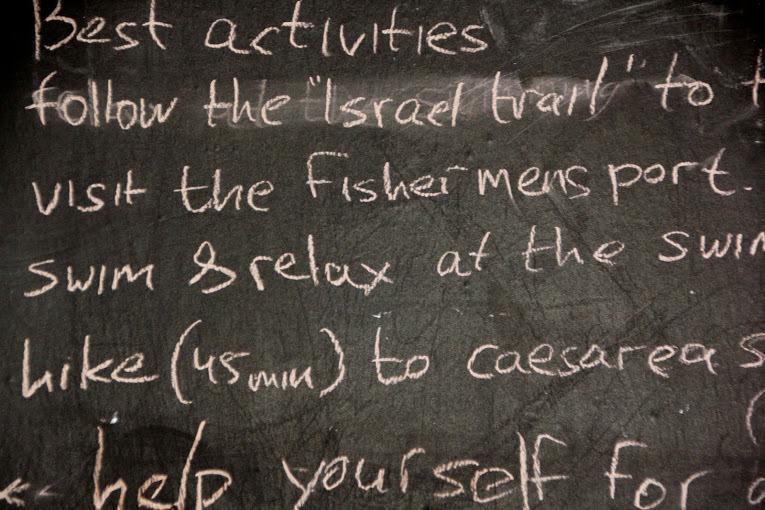 Best activities
follow the "Israel trail" to t
visit the Fishermens port.
swim & relax at the swim
hike (45 min) to caesarea s
(
<-- help yourself for a